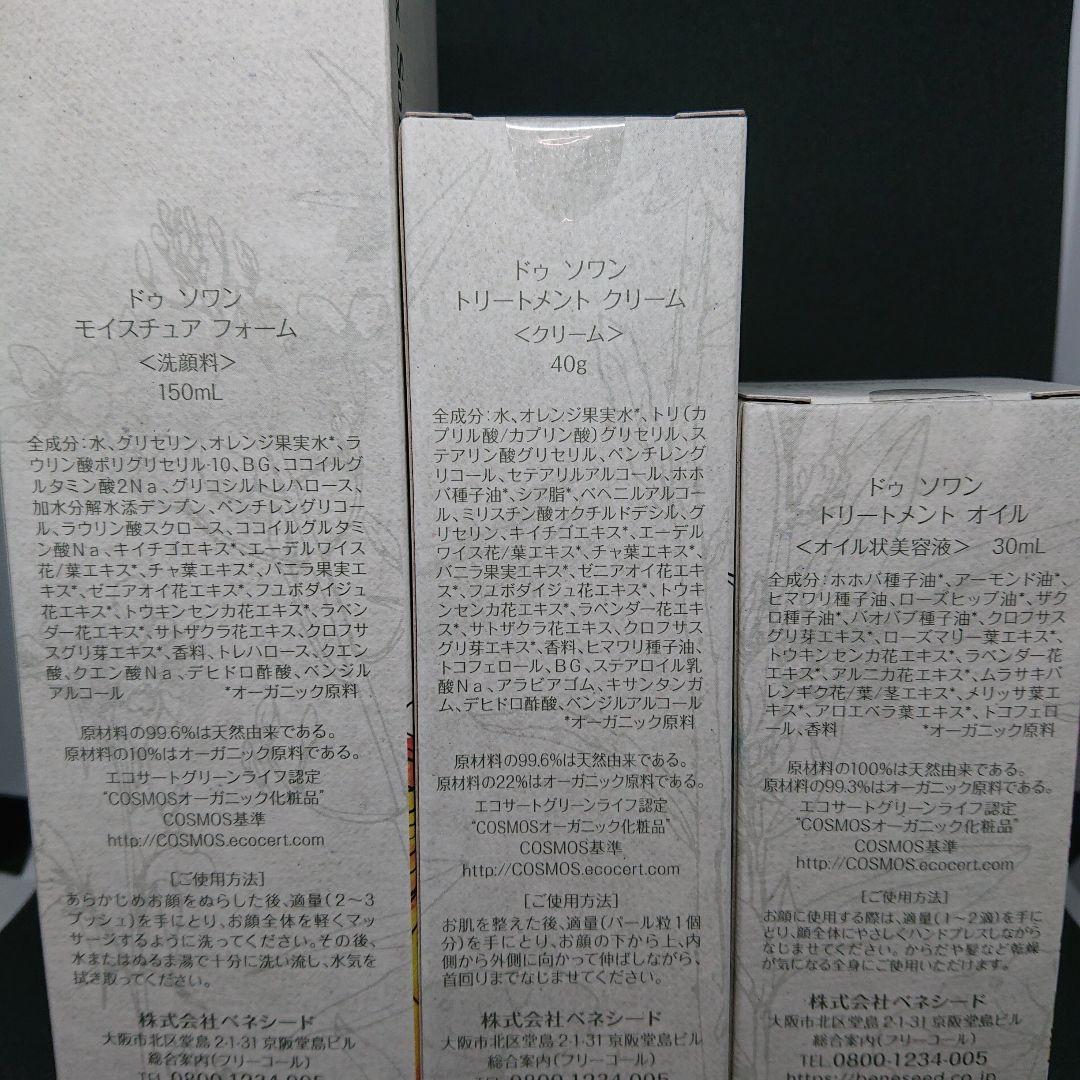 ドゥ ソワン
モイスチュア フォーム
＜洗顔料＞
150mL
全成分：水、グリセリン、オレンジ果実水*、ラ
ウリン酸ポリグリセリル-10、BG、ココイルグ
ルタミン酸2Na、グリコシルトレハロース、
加水分解水添デンプン、ペンチレングリコー
ル、ラウリン酸スクロース、ココイルグルタミ
ン酸Na、キイチゴエキス*、エーデルワイス
花/葉エキス*、チャ葉エキス*、バニラ果実エ
キス*、ゼニアオイ花エキス*、フユボダイジュ
花エキス*、トウキンセンカ花エキス*、ラベン
ダー花エキス*、サトザクラ花エキス、クロフサ
スグリ芽エキス*、香料、トレハロース、クエン
酸、クエン酸Na、デヒドロ酢酸、ベンジル
アルコール *オーガニック原料
原材料の99.6%は天然由来である。
原材料の10%はオーガニック原料である。
エコサートグリーンライフ認定
“COSMOSオーガニック化粧品”
COSMOS基準
http://COSMOS.ecocert.com
［ご使用方法］
あらかじめお顔をぬらした後、適量（2～3
プッシュ）を手にとり、お顔全体を軽くマッ
サージするように洗ってください。その後、
水またはぬるま湯で十分に洗い流し、水気を
拭き取ってください。
株式会社ベネシード
大阪市北区堂島 2-1-31 京阪堂島ビル
総合案内（フリーコール）
TEL 0800-1234-005
ドゥ ソワン
トリートメント クリーム
＜クリーム＞
40g
全成分：水、オレンジ果実水*、トリ（カ
プリル酸/カプリン酸）グリセリル、ス
テアリン酸グリセリル、ペンチレング
リコール、セテアリルアルコール、ホホ
バ種子油*、シア脂*、ベヘニルアルコー
ル、ミリスチン酸オクチルドデシル、グ
リセリン、キイチゴエキス*、エーデル
ワイス花/葉エキス*、チャ葉エキス*、
バニラ果実エキス*、ゼニアオイ花エキ
ス*、フユボダイジュ花エキス*、トウキ
ンセンカ花エキス*、ラベンダー花エキ
ス*、サトザクラ花エキス、クロフサス
グリ芽エキス*、香料、ヒマワリ種子油、
トコフェロール、BG、ステアロイル乳
酸Na、アラビアゴム、キサンタンガ
ム、デヒドロ酢酸、ベンジルアルコール
*オーガニック原料
原材料の99.6%は天然由来である。
原材料の22%はオーガニック原料である。
エコサートグリーンライフ認定
“COSMOSオーガニック化粧品”
COSMOS基準
http://COSMOS.ecocert.com
［ご使用方法］
お肌を整えた後、適量（パール粒1個
分）を手にとり、お顔の下から上、内
側から外側に向かって伸ばしながら、
首回りまでなじませてください。
株式会社ベネシード
大阪市北区堂島 2-1-31 京阪堂島ビル
総合案内（フリーコール）
TEL 0800-1234-005
ドゥ ソワン
トリートメント オイル
＜オイル状美容液＞ 30mL
全成分：ホホバ種子油*、アーモンド油*、
ヒマワリ種子油、ローズヒップ油*、ザク
ロ種子油*、バオバブ種子油*、クロフサス
グリ芽エキス*、ローズマリー葉エキス*、
トウキンセンカ花エキス*、ラベンダー花
エキス*、アルニカ花エキス*、ムラサキバ
レンギク花/葉/茎エキス*、メリッサ葉エ
キス*、アロエベラ葉エキス*、トコフェロ
ール、香料 *オーガニック原料
原材料の100%は天然由来である。
原材料の99.3%はオーガニック原料である。
エコサートグリーンライフ認定
“COSMOSオーガニック化粧品”
COSMOS基準
http://COSMOS.ecocert.com
［ご使用方法］
お顔に使用する際は、適量（1～2滴）を手に
とり、顔全体にやさしくハンドプレスしながら
なじませてください。からだや髪など乾燥
が気になる全身にご使用いただけます。
株式会社ベネシード
大阪市北区堂島 2-1-31 京阪堂島ビル
総合案内（フリーコール）
TEL 0800-1234-005
https://beneseed.co.jp